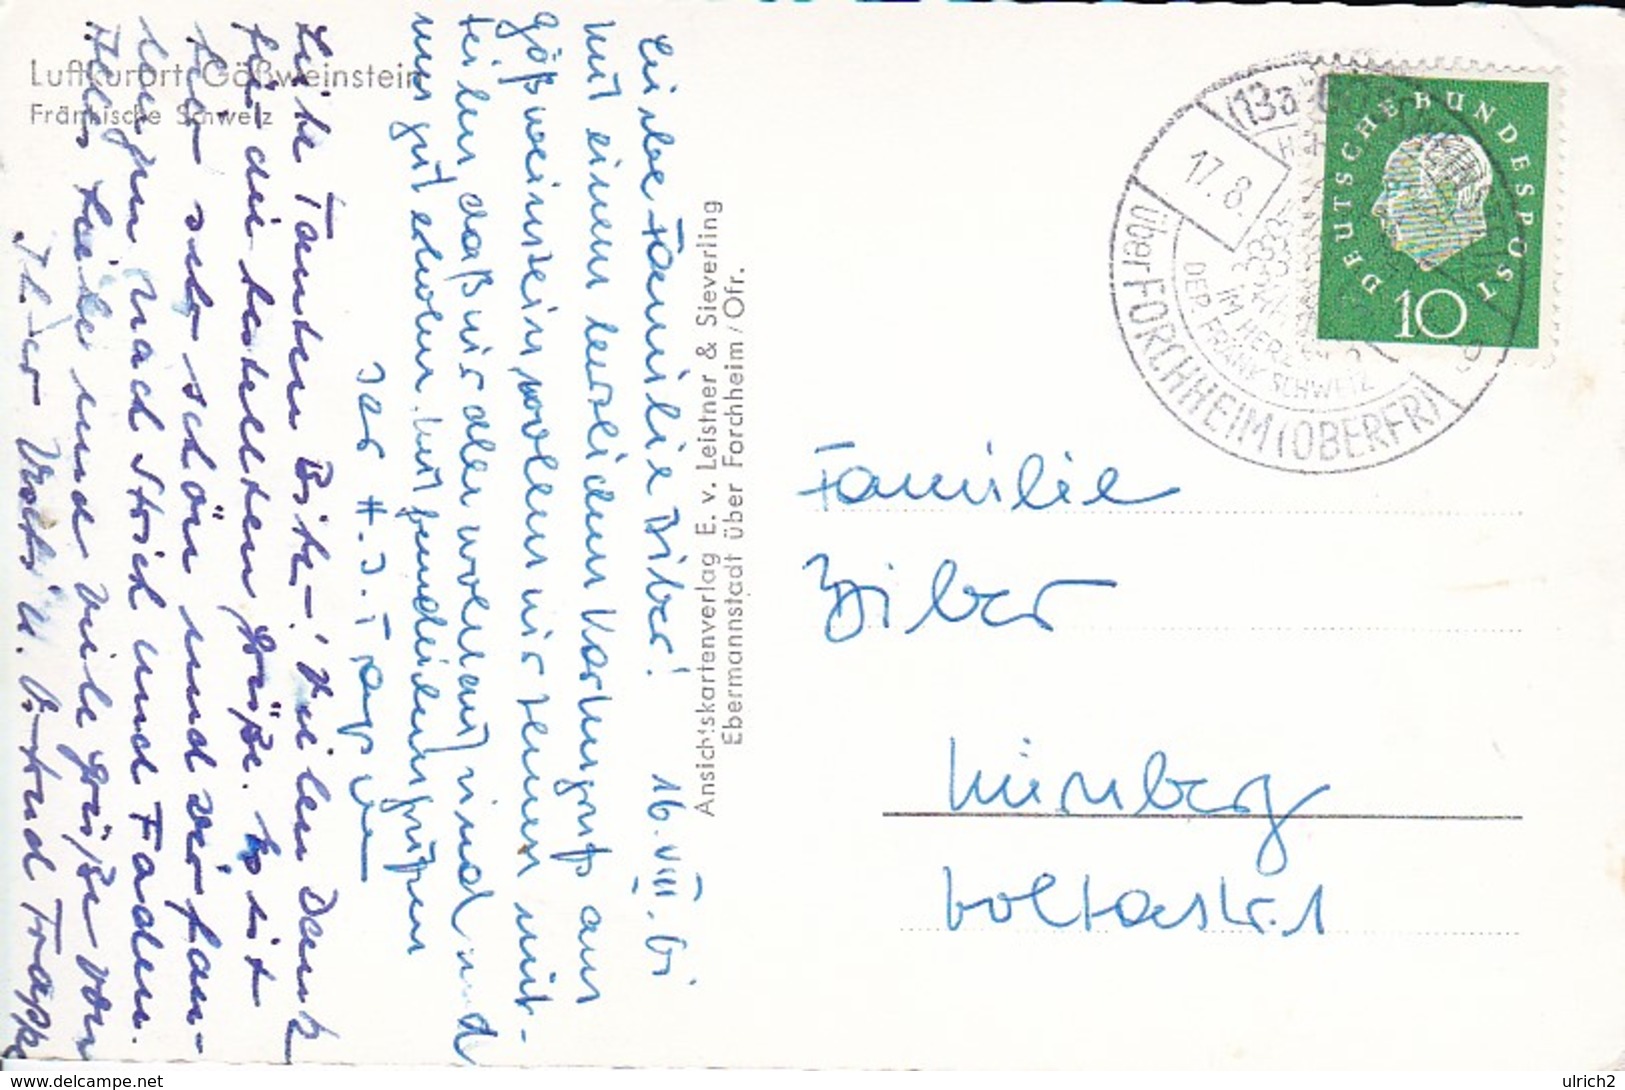 Luftkurort Gößweinstein
Fränkische Schweiz
Liebe Familie Biber! 16. VIII. 61
Mit einem herzlichen Kartengruß aus
Gößweinstein, wollen wir Ihnen mit-
teilen, daß wir alle wohlauf sind und
uns gut erholen. Mit freundlichen Grüßen
Ihr H. J. Trapp
Liebe Tanten Bibe-! Vielen Dank
für die bestellten Grüße. Es ist
hier sehr schön und wir fau-
lenzen nach Strich und Faden.
Alles Liebe und viele Grüße von
Ihrer u. Trapp
Ansichtskartenverlag E. v. Leistner & Sieverling
Ebermannstadt über Forchheim / Ofr.
(13a)
17.8.
über FORCHHEIM (OBERFR)
IM HERZEN
DER FRÄNK SCHWEIZ
DEUTSCHE BUNDESPOST
10
Familie
Biber
Nürnberg
Voltastr. 1
ulrich2
http://www.delcampe.net